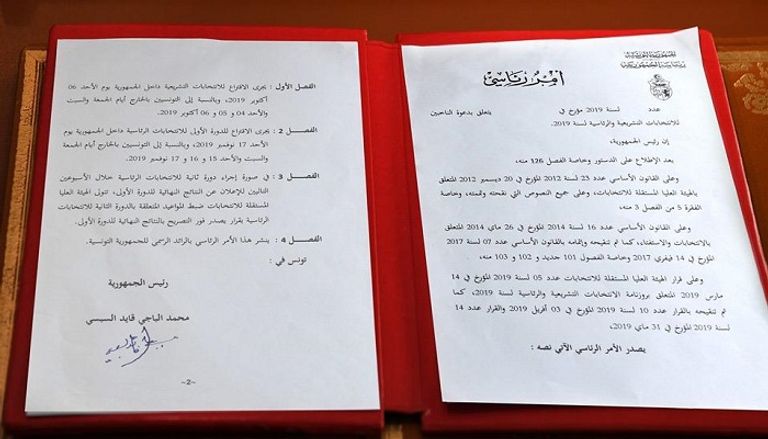 الجمهورية التونسية
رئاسة الجمهورية
أمر رئاسي
عدد لسنة 2019 مؤرخ في يتعلق بدعوة الناخبين
للانتخابات التشريعية والرئاسية لسنة 2019.
إن رئيس الجمهورية،
بعد الإطلاع على الدستور وخاصة الفصل 126 منه،
وعلى القانون الأساسي عدد 23 لسنة 2012 المؤرخ في 20 ديسمبر 2012 المتعلق
بالهيئة العليا المستقلة للانتخابات، وعلى جميع النصوص التي نقحته وتممته، وخاصة
الفقرة 5 من الفصل 3 منه،
وعلى القانون الأساسي عدد 16 لسنة 2014 المؤرخ في 26 ماي 2014 المتعلق
بالانتخابات والاستفتاء، كما تم تنقيحه وإتمامه بالقانون الأساسي عدد 07 لسنة 2017
المؤرخ في 14 فيفري 2017 وخاصة الفصول 101 جديد و 102 و 103 منه،
وعلى قرار الهيئة العليا المستقلة للانتخابات عدد 05 لسنة 2019 المؤرخ في 14
مارس 2019 المتعلق بروزنامة الانتخابات التشريعية والرئاسية لسنة 2019، كما
تم تنقيحه بالقرار عدد 10 لسنة 2019 المؤرخ في 03 أفريل 2019 والقرار عدد 14
لسنة 2019 المؤرخ في 31 ماي 2019،
يصدر الأمر الرئاسي الآتي نصه :
الفصل الأول : يجرى الاقتراع للانتخابات التشريعية داخل الجمهورية يوم الأحد 06
أكتوبر 2019، وبالنسبة إلى التونسيين بالخارج أيام الجمعة والسبت
والأحد 04 و 05 و 06 أكتوبر 2019.
الفصل 2 : يجرى الاقتراع للدورة الأولى للانتخابات الرئاسية داخل الجمهورية يوم
الأحد 17 نوفمبر 2019، وبالنسبة إلى التونسيين بالخارج أيام الجمعة
والسبت والأحد 15 و 16 و 17 نوفمبر 2019.
الفصل 3 : في صورة إجراء دورة ثانية للانتخابات الرئاسية خلال الأسبوعين
التاليين للإعلان عن النتائج النهائية للدورة الأولى، تتولى الهيئة العليا
المستقلة للانتخابات ضبط المواعيد المتعلقة بالدورة الثانية للانتخابات
الرئاسية بقرار يصدر فور التصريح بالنتائج النهائية للدورة الأولى.
الفصل 4 : ينشر هذا الأمر الرئاسي بالرائد الرسمي للجمهورية التونسية.
تونس في :
رئيس الجمهورية
محمد الباجي قايد السبسي
-2-